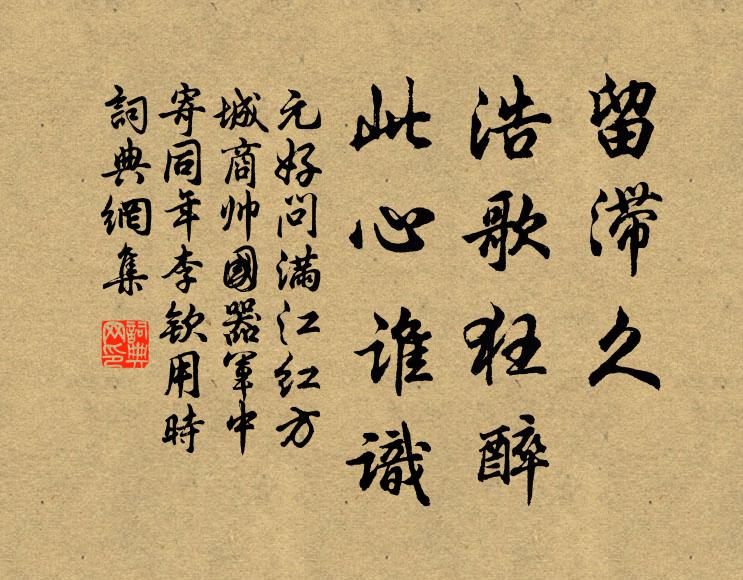 留滞久
浩歌狂醉
此心谁識
元好问满江红方
城商帅國器軍中
寄同年李欽用時
詞典網集
詞典
网印